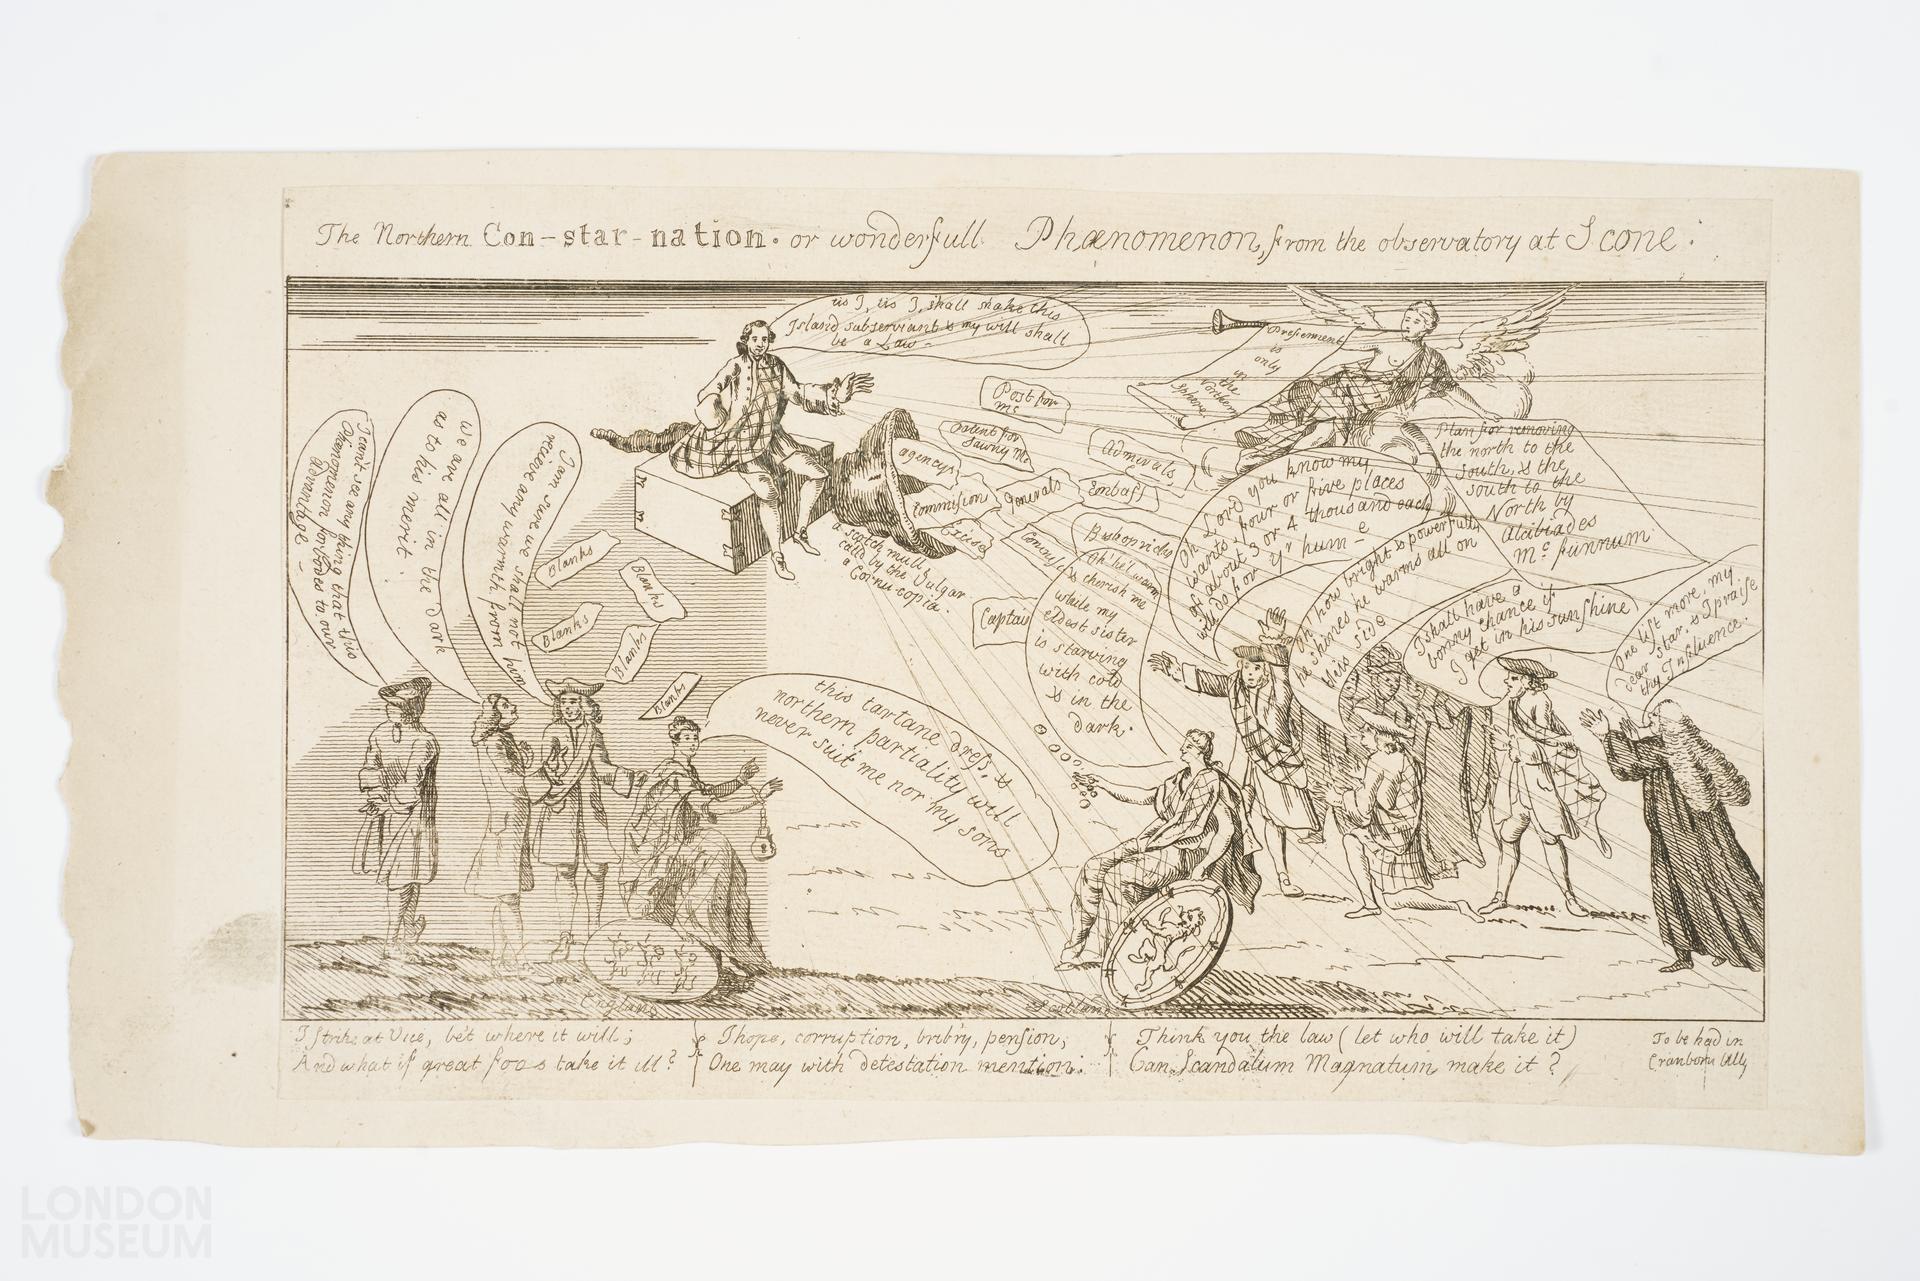 The Northern Con-star-nation. or wonderfull Phænomenon, from the observatory at Scone:
tis I, tis I, shall make this
Island subserviant & my will shall
be a Law-
Preferment
is
only
in
the
Northern
Sphere
Plan for removing
the north to the
South, & the
south to the
North by
Alcibiades
Mc. funnum
I can't see any thing that this
Phænomenon forboxes to our
Advantage-
We are all in the dark
as to his merit.
I am sure we shall not
recieve any warmth from him
Blanks
Blanks
Blanks
Blanks
Blanks
a Scotch mull
calld by the Vulgar
a Cornu-copia.
Post for
Mc
Patent for
Sawny Mc
Admirals
agencys
Commission
Generals
Embass
Excise
Captain
this tartane dress, &
northern partiality will
never suit me nor my sons
Oh he'l warm
& cherish me
while my
eldest sister
is starving
with cold
& is in the
dark.
Oh Lord you know my
wants, four or five places
of about 3 or 4 thousand each
will do for yr hum-e
Oh how bright & powerfully
he shines he warms all on
this side
I shall have a
bonny chance if
I get in his sunshine
One lift more, my
dear star, & I praise
thy Influence.
England
Scotland
I strike at Vice, be't where it will;
And what if great foos take it ill?
I hope, corruption, brib'ry, pension,
One may with detestation mention:
Think you the law (let who will take it)
Can Scandalum Magnatum make it?
To be had in
Cranborn Ally
LONDON
MUSEUM